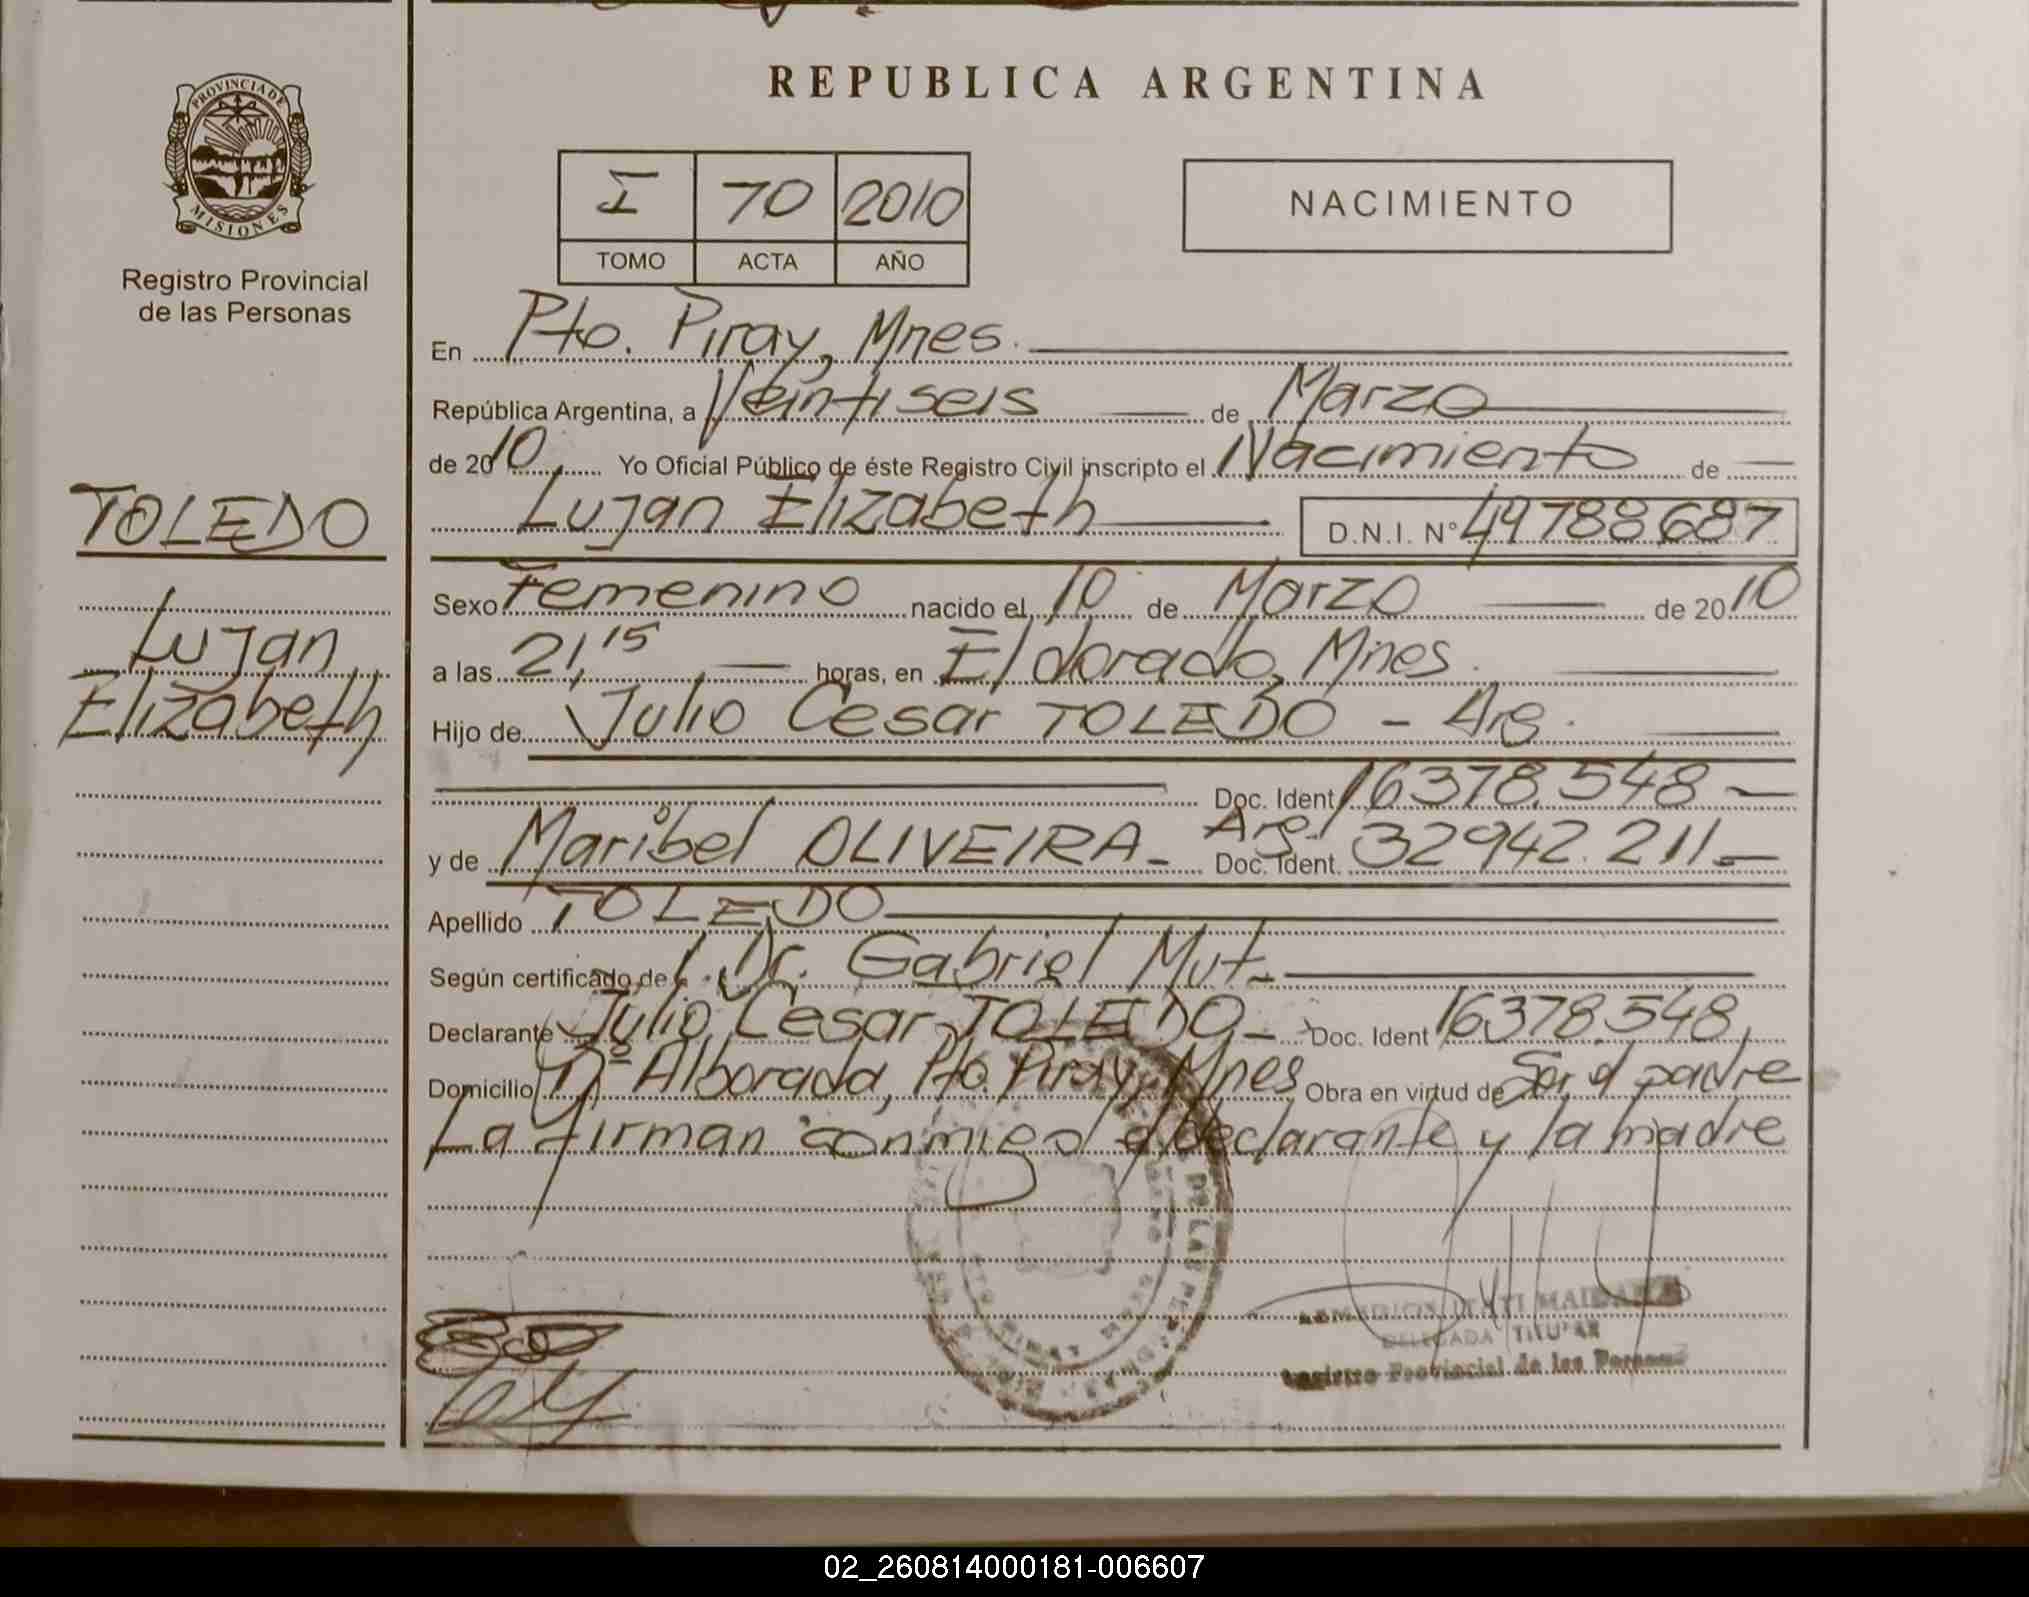 REPUBLICA ARGENTINA
PROVINCIA DE
MISIONES
Registro Provincial
de las Personas
TOLEDO
Lujan
Elizabeth
I 70 2010
TOMO ACTA AÑO
NACIMIENTO
En Pto. Piray, Mnes.
República Argentina, a Veintiseis de Marzo
de 2010 Yo Oficial Público de éste Registro Civil inscripto el Nacimiento de
Lujan Elizabeth D.N.I. Nº 49788687
Sexo Femenino nacido el 10 de Marzo de 2010
a las 21,15 horas, en Eldorado, Mnes.
Hijo de Julio Cesar TOLEDO - Arg.
Doc. Ident 16378.548
y de Maribel OLIVEIRA - Arg. Doc. Ident. 32942.211
Apellido TOLEDO
Según certificado de Dr. Gabriel Mut
Declarante Julio Cesar TOLEDO - Doc. Ident 16378.548,
Domicilio Bº Alborada, Pto. Piray, Mnes Obra en virtud de Ser el padre
La firman conmigo el declarante y la madre
DE LAS
DELEGADA TITULAR
Registro Provincial de las Personas
02_260814000181-006607